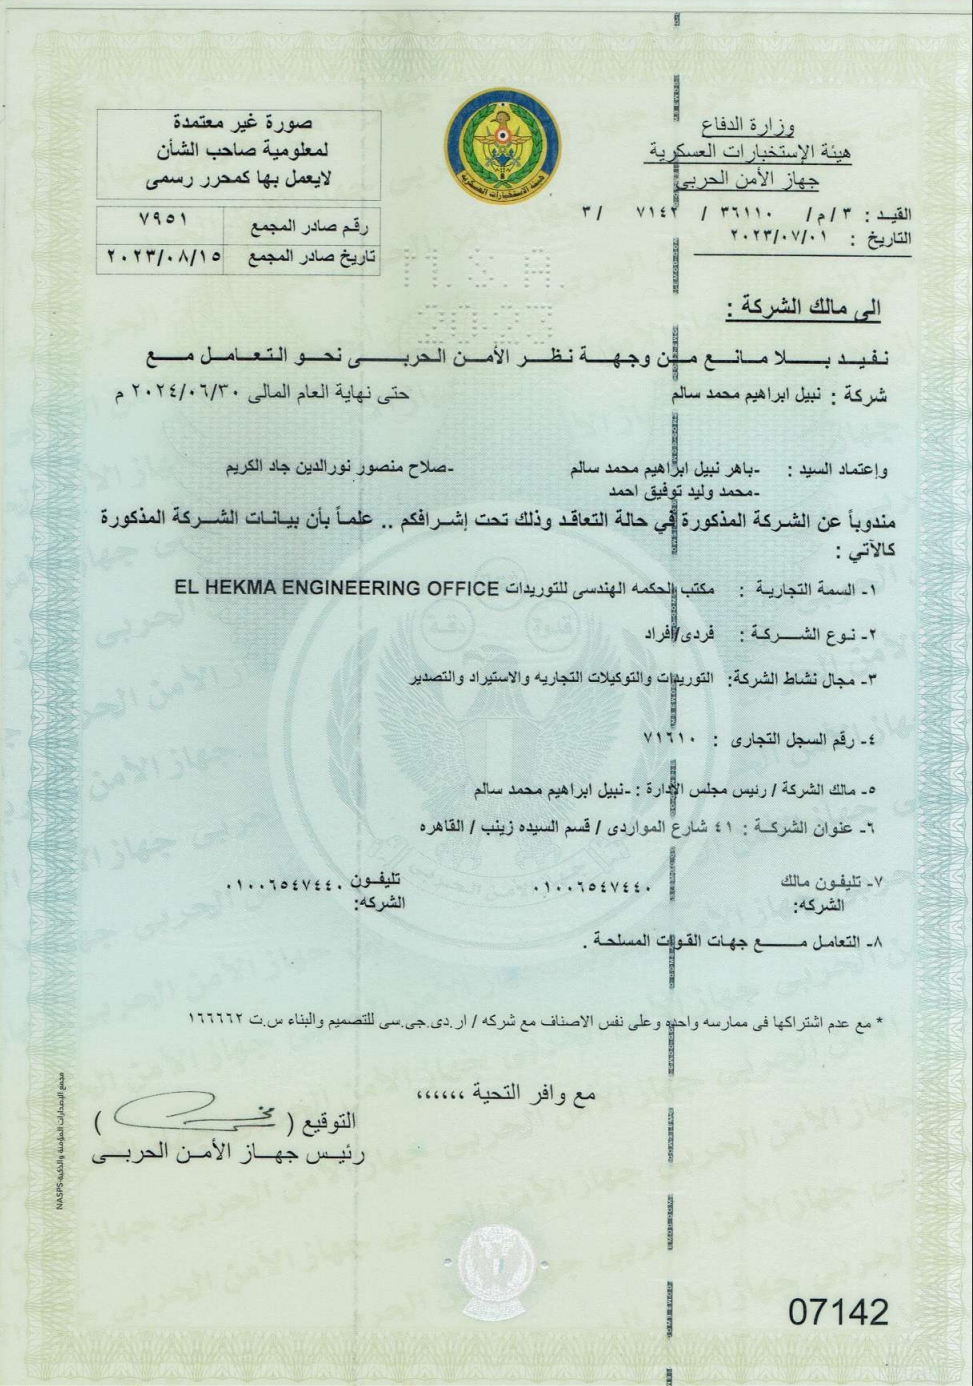 وزارة الدفاع
هيئة الإستخبارات العسكرية
جهاز الأمن الحربى
القيد : ٣ / م / ٣٦١١٠ / ٧١٤٢ / ٣
التاريخ : ٢٠٢٣/٠٧/٠١
صورة غير معتمدة
لمعلومية صاحب الشأن
لايعمل بها كمحرر رسمى
رقم صادر المجمع ٧٩٥١
تاريخ صادر المجمع ٢٠٢٣/٠٨/١٥
هيئة الاستخبارات العسكرية
الى مالك الشركة :
نفيد بلا مانع من وجهة نظر الأمن الحربى نحو التعامل مع
شركة : نبيل ابراهيم محمد سالم حتى نهاية العام المالى ٢٠٢٤/٠٦/٣٠ م
وإعتماد السيد : -باهر نبيل ابراهيم محمد سالم -صلاح منصور نورالدين جاد الكريم
-محمد وليد توفيق احمد
مندوباً عن الشركة المذكورة في حالة التعاقد وذلك تحت إشرافكم .. علماً بأن بيانات الشركة المذكورة
كالآتي :
١- السمة التجارية : مكتب الحكمه الهندسى للتوريدات EL HEKMA ENGINEERING OFFICE
٢- نوع الشركة : فردى/افراد
٣- مجال نشاط الشركة: التوريدات والتوكيلات التجاريه والاستيراد والتصدير
٤- رقم السجل التجارى : ٧١٦١٠
٥- مالك الشركة / رئيس مجلس الإدارة : -نبيل ابراهيم محمد سالم
٦- عنوان الشركة : ٤١ شارع المواردى / قسم السيده زينب / القاهره
٧- تليفون مالك الشركه: ٠١٠٠٦٥٤٧٤٤٠ تليفون الشركه: ٠١٠٠٦٥٤٧٤٤٠
٨- التعامل مع جهات القوات المسلحة .
* مع عدم اشتراكها فى ممارسه واحده وعلى نفس الاصناف مع شركه / ار.دى.جى.سى للتصميم والبناء س.ت ١٦٦٦٦٢
مع وافر التحية ،،،،،،
التوقيع ( )
رئيس جهاز الأمن الحربى
مجمع الإصدارات المؤمنة والذكية-NASPS
07142